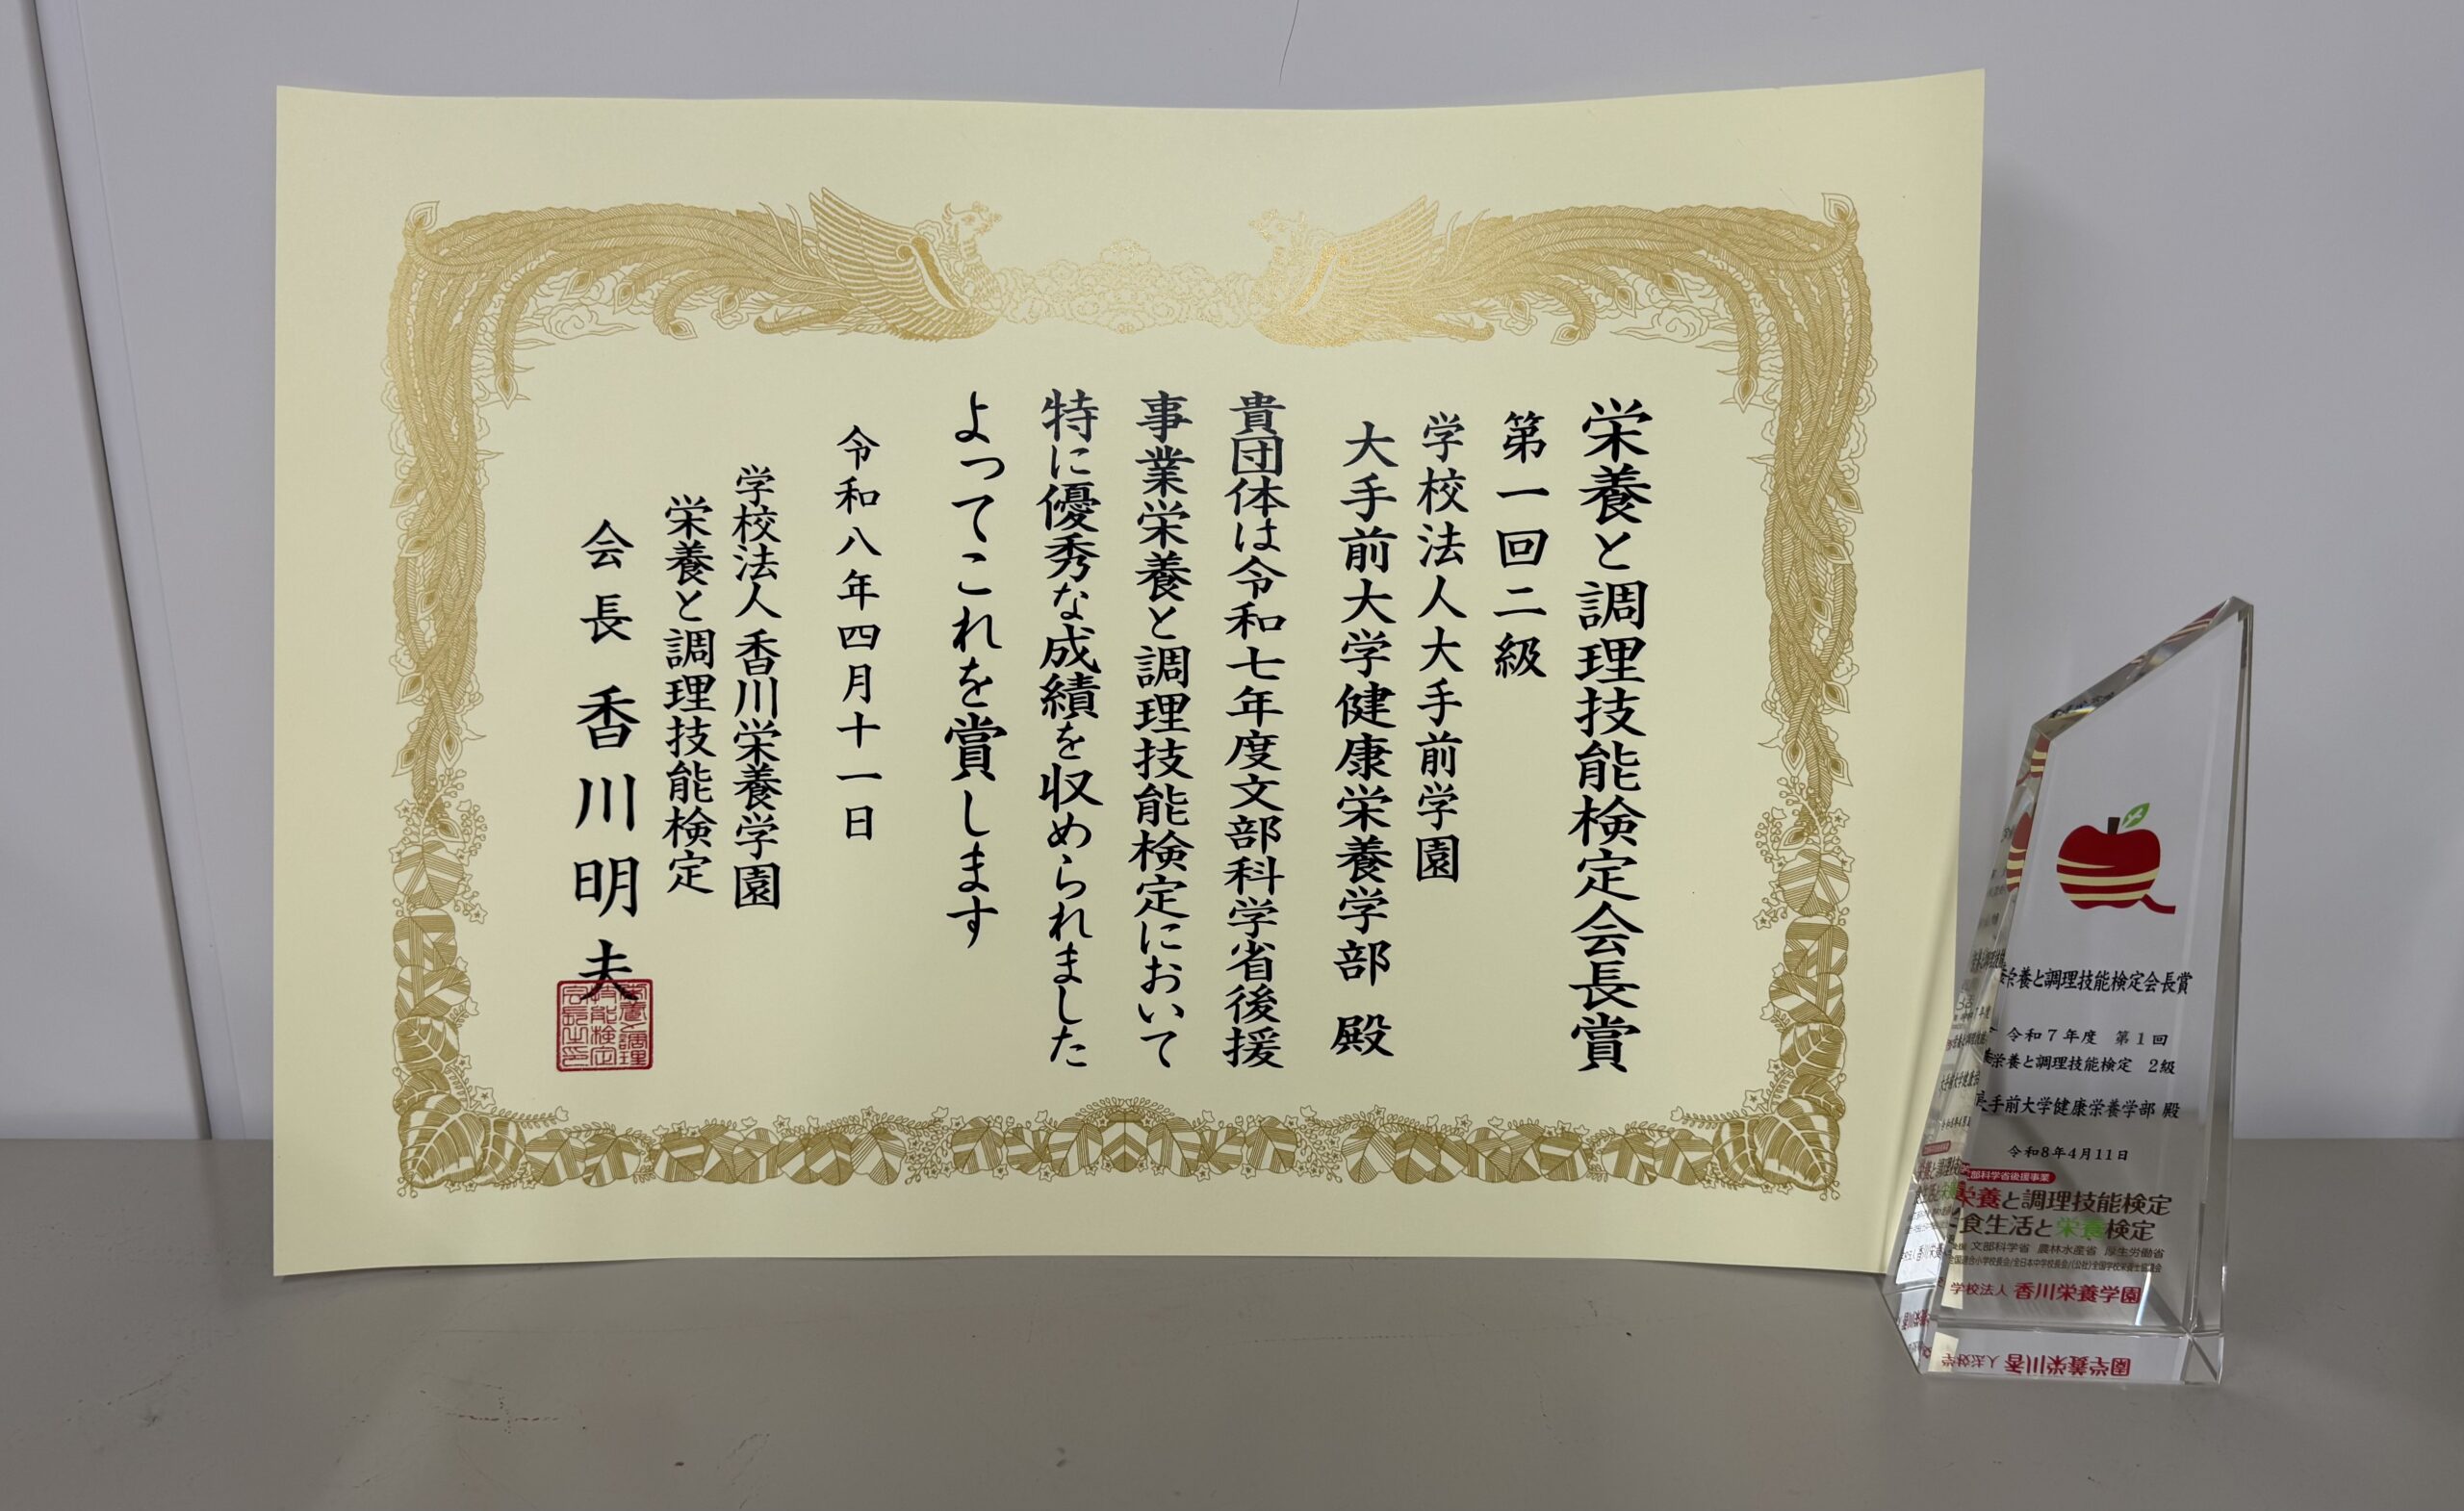 栄養と調理技能検定会長賞
第一回二級
学校法人大手前学園
大手前大学健康栄養学部 殿
貴団体は令和七年度文部科学省後援
事業栄養と調理技能検定において
特に優秀な成績を収められました
よってこれを賞します
令和八年四月十一日
学校法人 香川栄養学園
栄養と調理技能検定
会長 香川明夫
栄養と調理技能検定会長之印
栄養と調理技能検定会長賞
令和7年度 第1回
栄養と調理技能検定 2級
大手前大学健康栄養学部 殿
令和8年4月11日
文部科学省後援事業
栄養と調理技能検定
食生活と栄養検定
文部科学省 農林水産省 厚生労働省
全国連合小学校長会/全日本中学校長会/(公社)全国学校栄養士協議会
学校法人 香川栄養学園